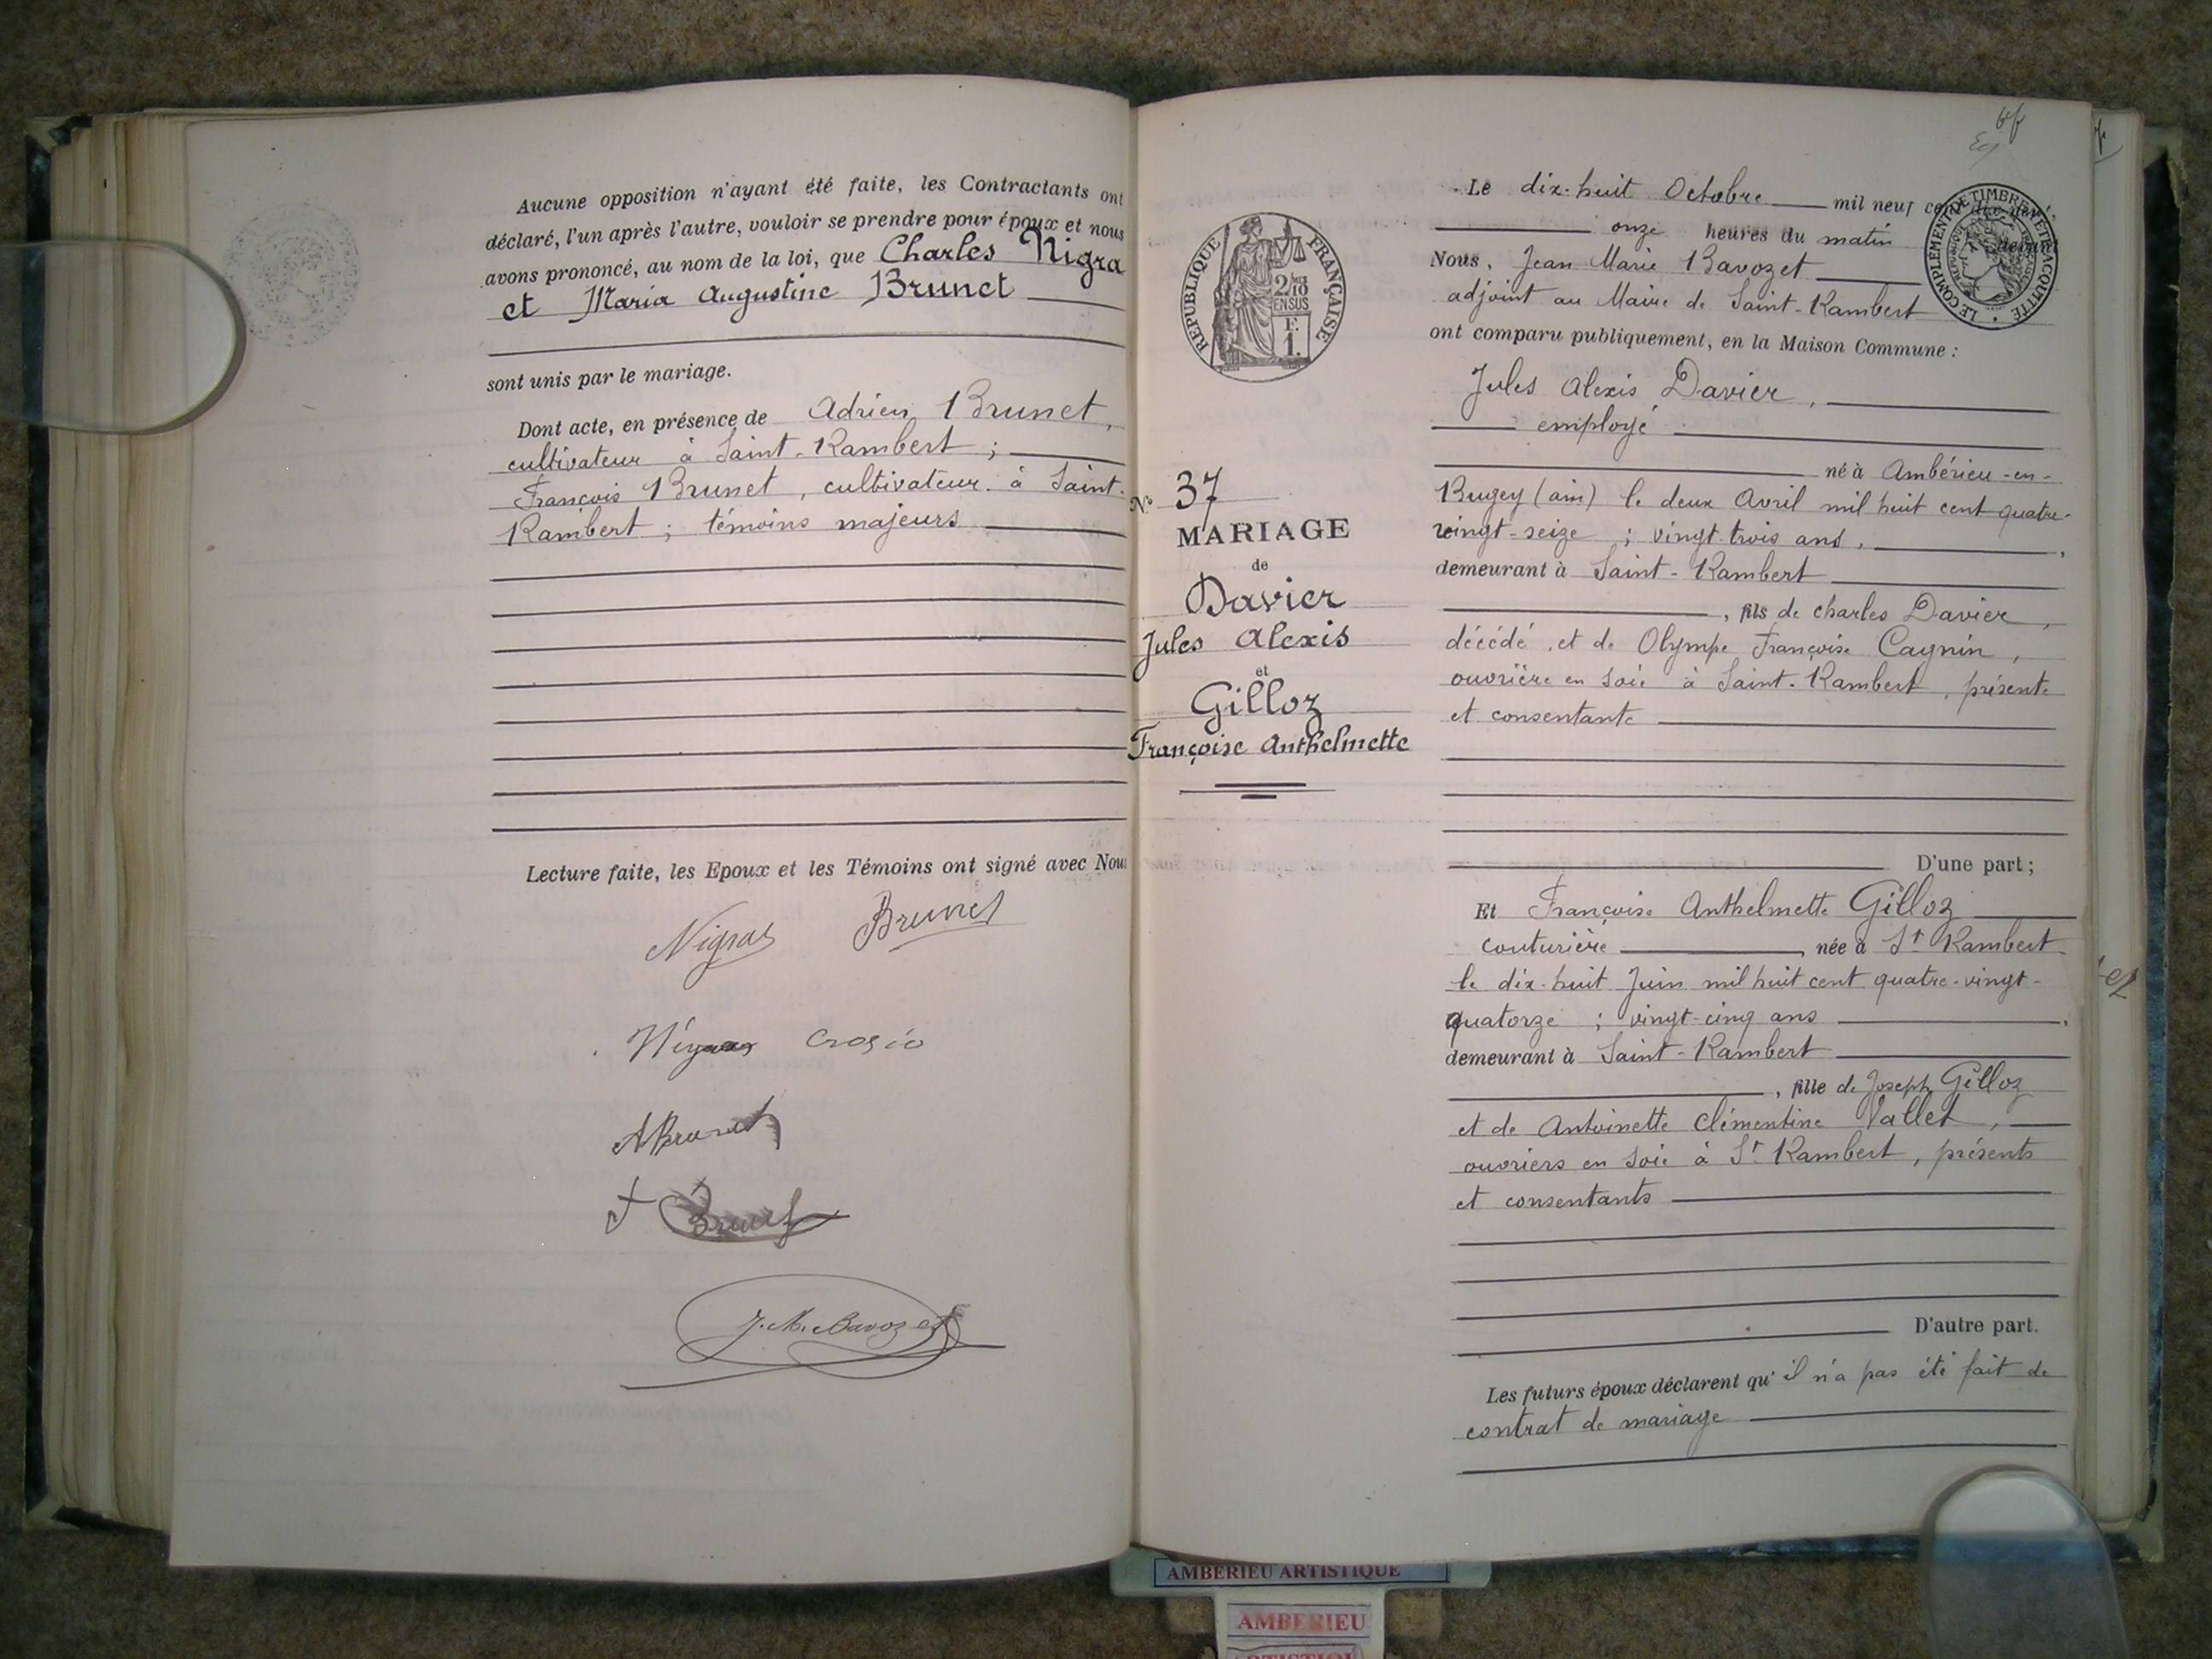 Aucune opposition n'ayant été faite, les Contractants ont
déclaré, l'un après l'autre, vouloir se prendre pour époux et nous
avons prononcé, au nom de la loi, que Charles Nigra
et Maria Augustine Brunet
sont unis par le mariage.
Dont acte, en présence de Adrien Brunet,
cultivateur à Saint-Rambert ;
François Brunet, cultivateur à Saint-
Rambert ; témoins majeurs
Lecture faite, les Epoux et les Témoins ont signé avec Nous
Nigra Brunet
Crosio
A Brunet
F Brunet
J. M. Bavozet
RÉPUBLIQUE FRANÇAISE
2/10
EN SUS
F.
1.
N° 37
MARIAGE
de
Davier
Jules Alexis
et
Gilloz
Françoise Anthelmette
Le dix-huit Octobre mil neuf cent dix-neuf
onze heures du matin
LE COMPLÉMENT DE TIMBRE A ÉTÉ ACQUITTÉ
Nous, Jean Marie Bavozet
adjoint au Maire de Saint-Rambert
ont comparu publiquement, en la Maison Commune :
Jules Alexis Davier,
employé
né à Ambérieu-en-
Bugey (Ain) le deux Avril mil huit cent quatre-
vingt-seize ; vingt-trois ans,
demeurant à Saint-Rambert
, fils de Charles Davier,
décédé, et de Olympe Françoise Cagnin,
ouvrière en soie à Saint-Rambert, présente
et consentante
D'une part ;
Et Françoise Anthelmette Gilloz
couturière, née à St Rambert
le dix-huit Juin mil huit cent quatre-vingt-
quatorze ; vingt-cinq ans,
demeurant à Saint-Rambert
, fille de Joseph Gilloz
et de Antoinette Clémentine Vallet,
ouvriers en soie à St Rambert, présents
et consentants
D'autre part.
Les futurs époux déclarent qu'il n'a pas été fait de
contrat de mariage
AMBERIEU ARTISTIQUE
AMBERIEU